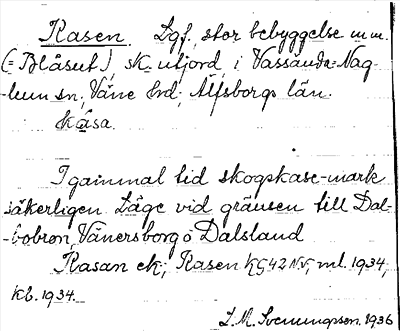 Kasen. Lgf, stor bebyggelse m.m.
(= Blåsut), sk. utjord, i Vassända-Nag-
-lum sn, Väne hrd, Älfsborgs län.
kåsa.
I gammal tid skogskase-mark
säkerligen. Läge vid gränsen till Dal-
-bobron, Vänersborg o Dalsland
Kasan ek, Kasen KG42NV, ml. 1934,
kb. 1934.
L. M. Svenungsson. 1936